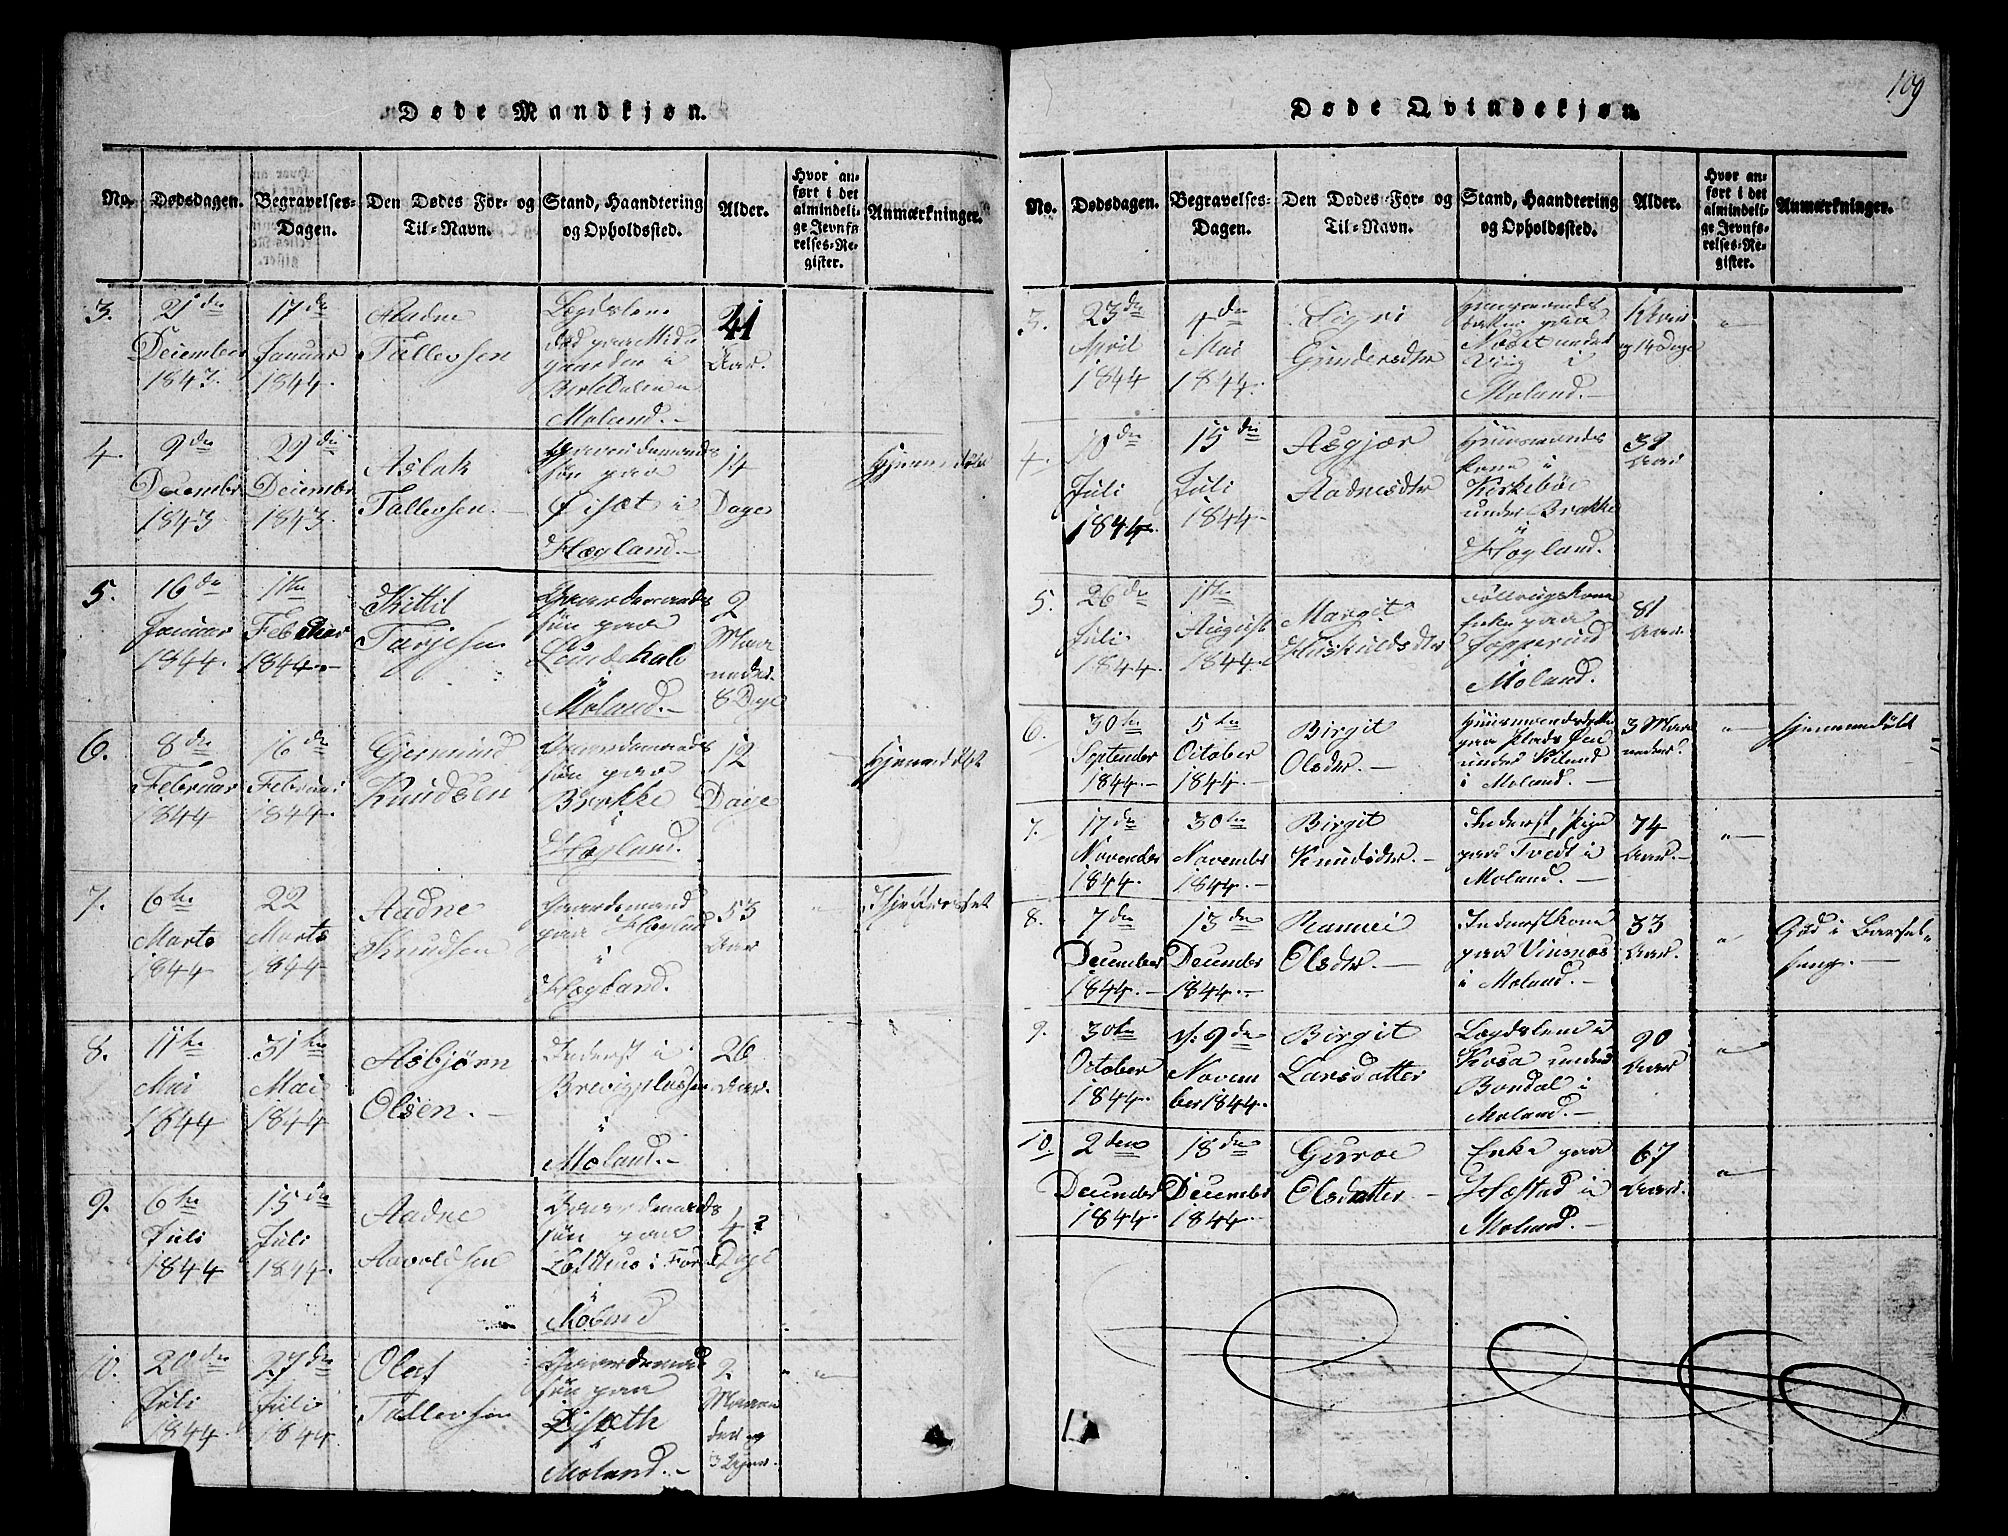 Døde Mandkjøn.
No.
Dødsdagen.
Begravelses-
Dagen.
Den Dødes For- og
Til-Navn.
Stand, Haandtering
og Opholdssted.
Alder.
Hvor an-
ført i det
almindeli-
ge Jevnfø-
relses-Re-
gister.
Anmærkninger.
3.
21de
December
1843.
17de
Januar
1844.
Aadne
Tallevsen
Lægdslem
i
Moland.
41
Aar.
4.
9de
December
1843
29de
December
1843.
Aslak
Tallevsen.
Gaardemands
søn paa
i
Hægland.
14
Dage
Hjemmedøbt
5.
16de
Januar
1844.
1ste
Februar
1844.
Kittil
Tarjesen
Gaardemands
søn paa
i
Moland.
2
Maa
neder
8 Dage
6.
8de
Februar
1844
16de
Februar
1844.
Gjermund
Knudsen
Gaardemands
søn paa
Brekke
i
Hægland.
12
Dage
Hjemmedøbt
7.
6te
Marts
1844
22
Marts
1844
Aadne
Knudsen
Gaardemand
paa
i
Hægland.
53
Aar
8.
11te
Mai
1844
31te
Mai
1844
Asbjørn
Olsen.
Inderst i
i
Moland.
26
Aar.
9.
6te
Juli
1844
15de
Juli
1844.
Aadne
Gaardemands
søn paa
i
Moland
4
Dage
10.
20de
Juli
1844.
27de
Juli
1844.
Olaf
Tallevsen
Gaardemands
søn paa
i
Moland.
2
Maane
der og
3 Uger.
109
Døde Qvindekjøn
No.
Dødsdagen.
Begravelses-
Dagen.
Den Dødes For- og
Til-Navn.
Stand, Haandtering
og Opholdssted.
Alder.
Hvor an-
ført i det
almindeli-
ge Jevnfø-
relses-Re-
gister.
Anmærkninger.
3.
23de
April
1844
4de
Mai
1844.
Signi
Gundersdtr
Huusmands
paa
under
Viig i
Moland.
og 14 Dage
4.
10de
Juli
1844.
15de
Juli
1844
Asgjær
Aadnesdtr
Huusmands
kone i
Kirkebøe
under Brække
i
Hægland.
39
Aar
5.
26de
Juli
1844.
1ste
August
1844.
Margit
Huskuldsdtr
Enke paa
i
Moland.
81
Aar.
6.
30te
September
1844.
5te
October
1844.
Birgit
Olsdtr.
paa Plads
under
i Moland.
3 Maa
neder.
Hjemmedøbt
7.
17de
November
1844.
30te
November
1844.
Birgit
Knudsdtr.
Inderst, Pige
paa Tvedt i
Moland.
74
Aar.
8.
7de
December
1844.
13de
December
1844.
Ranvei
Olsdtr.
Inderstkone
paa Vinsnæs
i Moland.
33
Aar.
Død i Barsel-
seng.
9.
30te
October
1844.
9de
Novem
ber 1844.
Birgit
Larsdatter
Lægdslem i
under
Bondal i
Moland.
90
Aar
10.
2den
December
1844.
18de
December
1844.
Guroe
Olsdatter
Enke paa
i
Moland.
67
Aar.